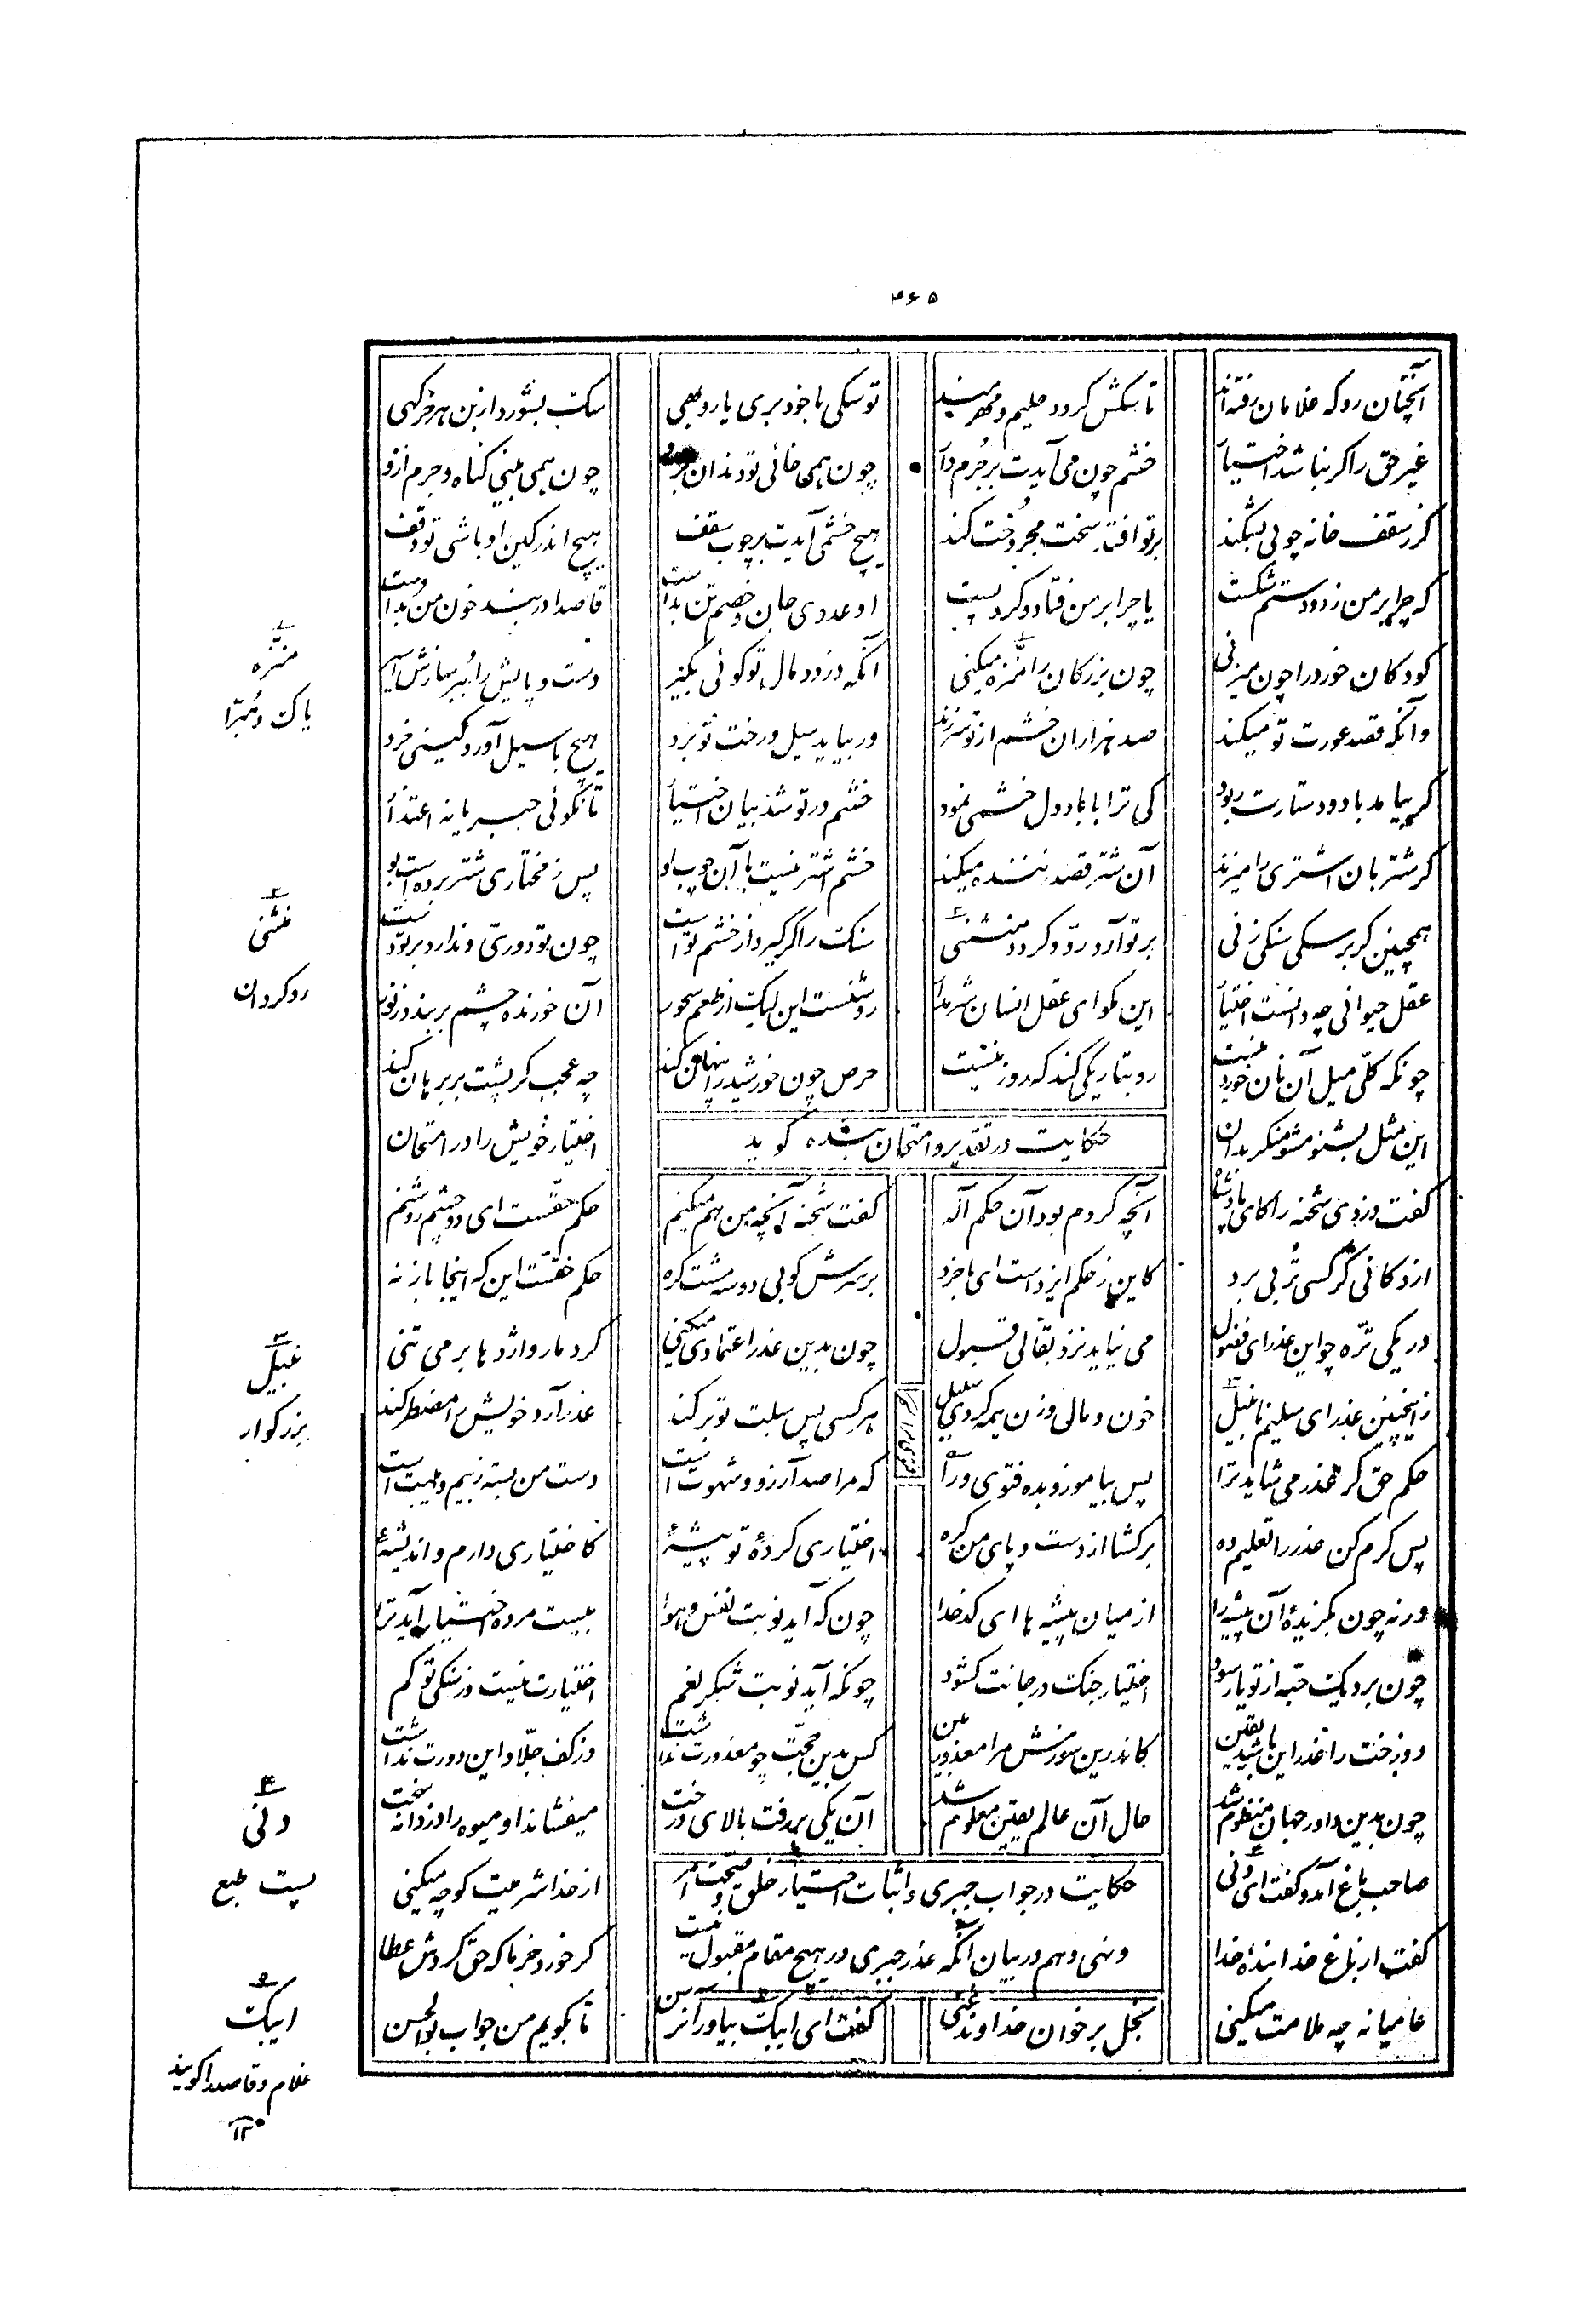 ۴۶۵
آنچنان رو که غلامان رفته‌اند تا سکش کردد حلیم و مهرمند تو سکی با خود بری یا روبهی سک بشورد از بن هر خرکهی
غیر حق را کر نباشد اختیار خشم چون می آیدت بر جرم دار چون همی خائی تو دندان بر عدو چون همی بینی کناه و جرم ازو
کز سقف خانه چوبی بشکند بر تو افتد سخت مجروحت کند هیچ خشمی آیدت بر چوب سقف هیچ اندر کین او باشی تو وقف
که چرا بر من زد و دستم شکست یا چرا بر من فتاد و کرد پست او عدوی جان و خصم تن بداست قاصدا در بند خون من بداست
کودکان خورد را چون میزنی چون بزرکان را منزه میکنی آنکه دزدد مال تو کوئی بکیر دست و پایش را ببر سازش اسیر
وانکه قصد عورت تو میکند صد هزاران خشم از تو سرزند ور بیاید سیل و رخت تو برد هیچ با سیل آورد کینی خرد
کر بیامد باد و دستارت ربود کی ترا با باد دل خشمی نمود خشم در تو شد بیان اختیار تا نکوئی جبریانه اعتذار
کر شتربان اشتری را میزند آن شتر قصد زننده میکند خشم اشتر نیست با آن چوب او پس ز مختاری شتر برده است بو
همچنین کر بر سکی سنکی زنی بر تو آرد رو و کردد منثنی سنک را کر کیرد از خشم تو است چون تو دوری و ندارد بر تو دست
عقل حیوانی چو دانست اختیار این مکو ای عقل انسان شرم دار روشنست این لیک از طمع سحور آن خورنده چشم بربندد ز نور
چونکه کلی میل آن نان خوردنیست رو بتاریکی کند که روز نیست حرص چون خورشید را پنهان کند چه عجب کر پشت بر برهان کند
حکایت در تقدیر و امتحان بنده کوید
این مثل بشنو مشو منکر بدان اختیار خویش را در امتحان
کفت دزدی شحنه را کای پادشاه آنچه کردم بود آن حکم اله کفت شحنه آنچه من هم میکنم حکم حقست ای دو چشم روشنم
از دکانی کر کسی تربی برد کاین ز حکم ایزد است ای با خرد بر سرش کوبی دو سه مشت کره حکم حقست این که اینجا باز نه
در یکی تره چو این عذر ای فضول می نیاید نزد بقالی قبول چون بدین عذر اعتمادی میکنی کرد مار و اژدها بر می تنی
زاینچنین عذر ای سلیم نانبیل خون و مال و زن همه کردی سبیل هر کسی پس سبلت تو بر کند عذر آرد خویش را مضطر کند
حکم حق کر عذر می شاید ترا پس بیاموز و بده فتوی ورا که مرا صد آرزو و شهوت است دست من بسته ز بیم و هیبت است
پس کرم کن عذر را تعلیم ده برکشا از دست و پای من کره اختیاری کردهٔ تو پیشهٔ کاختیاری دارم و اندیشهٔ
ورنه چون بکزیدهٔ آن پیشه را از میان پیشه ها ای کدخدا چون که آید نوبت نفس و هوا بیست مرده اختیار آید ترا
چون برد یک حبه از تو یار سود اختیار جنک در جانت کشود چونکه آید نوبت شکر نعم اختیارت نیست وز سنکی تو کم
دوزخت را عذر این باشد یقین کاندرین سوزش مرا معذور بین کس بدین حجت چو معذورت نداشت وز کف جلاد این دورت نداشت
چون بدین داور جهان منظوم شد حال آن عالم یقین معلوم شد آن یکی بر رفت بالای درخت میفشاند او میوه را دزدانه سخت
حکایت در جواب جبری و اثبات اختیار خلق و صحت امر
و نهی و هم در بیان آنکه عذر جبری در هیچ مقام مقبول نیست
صاحب باغ آمد و کفت ای دنی از خدا شرمیت کو چه میکنی
کفت از باغ خدا بندهٔ خدا کر خورد خرما که حق کردش عطا
عامیانه چه ملامت میکنی بخل بر خوان خداوند غنی کفت ای ایبک بیاور آن رسن تا بکویم من جواب بوالحسن
۱
منزه
پاک و مبرا
۲
منثنی
روکردان
۳
نبیل
بزرکوار
۴
دنی
پست طبع
۵
ایبک
غلام و قاصد را کویند
۱۲